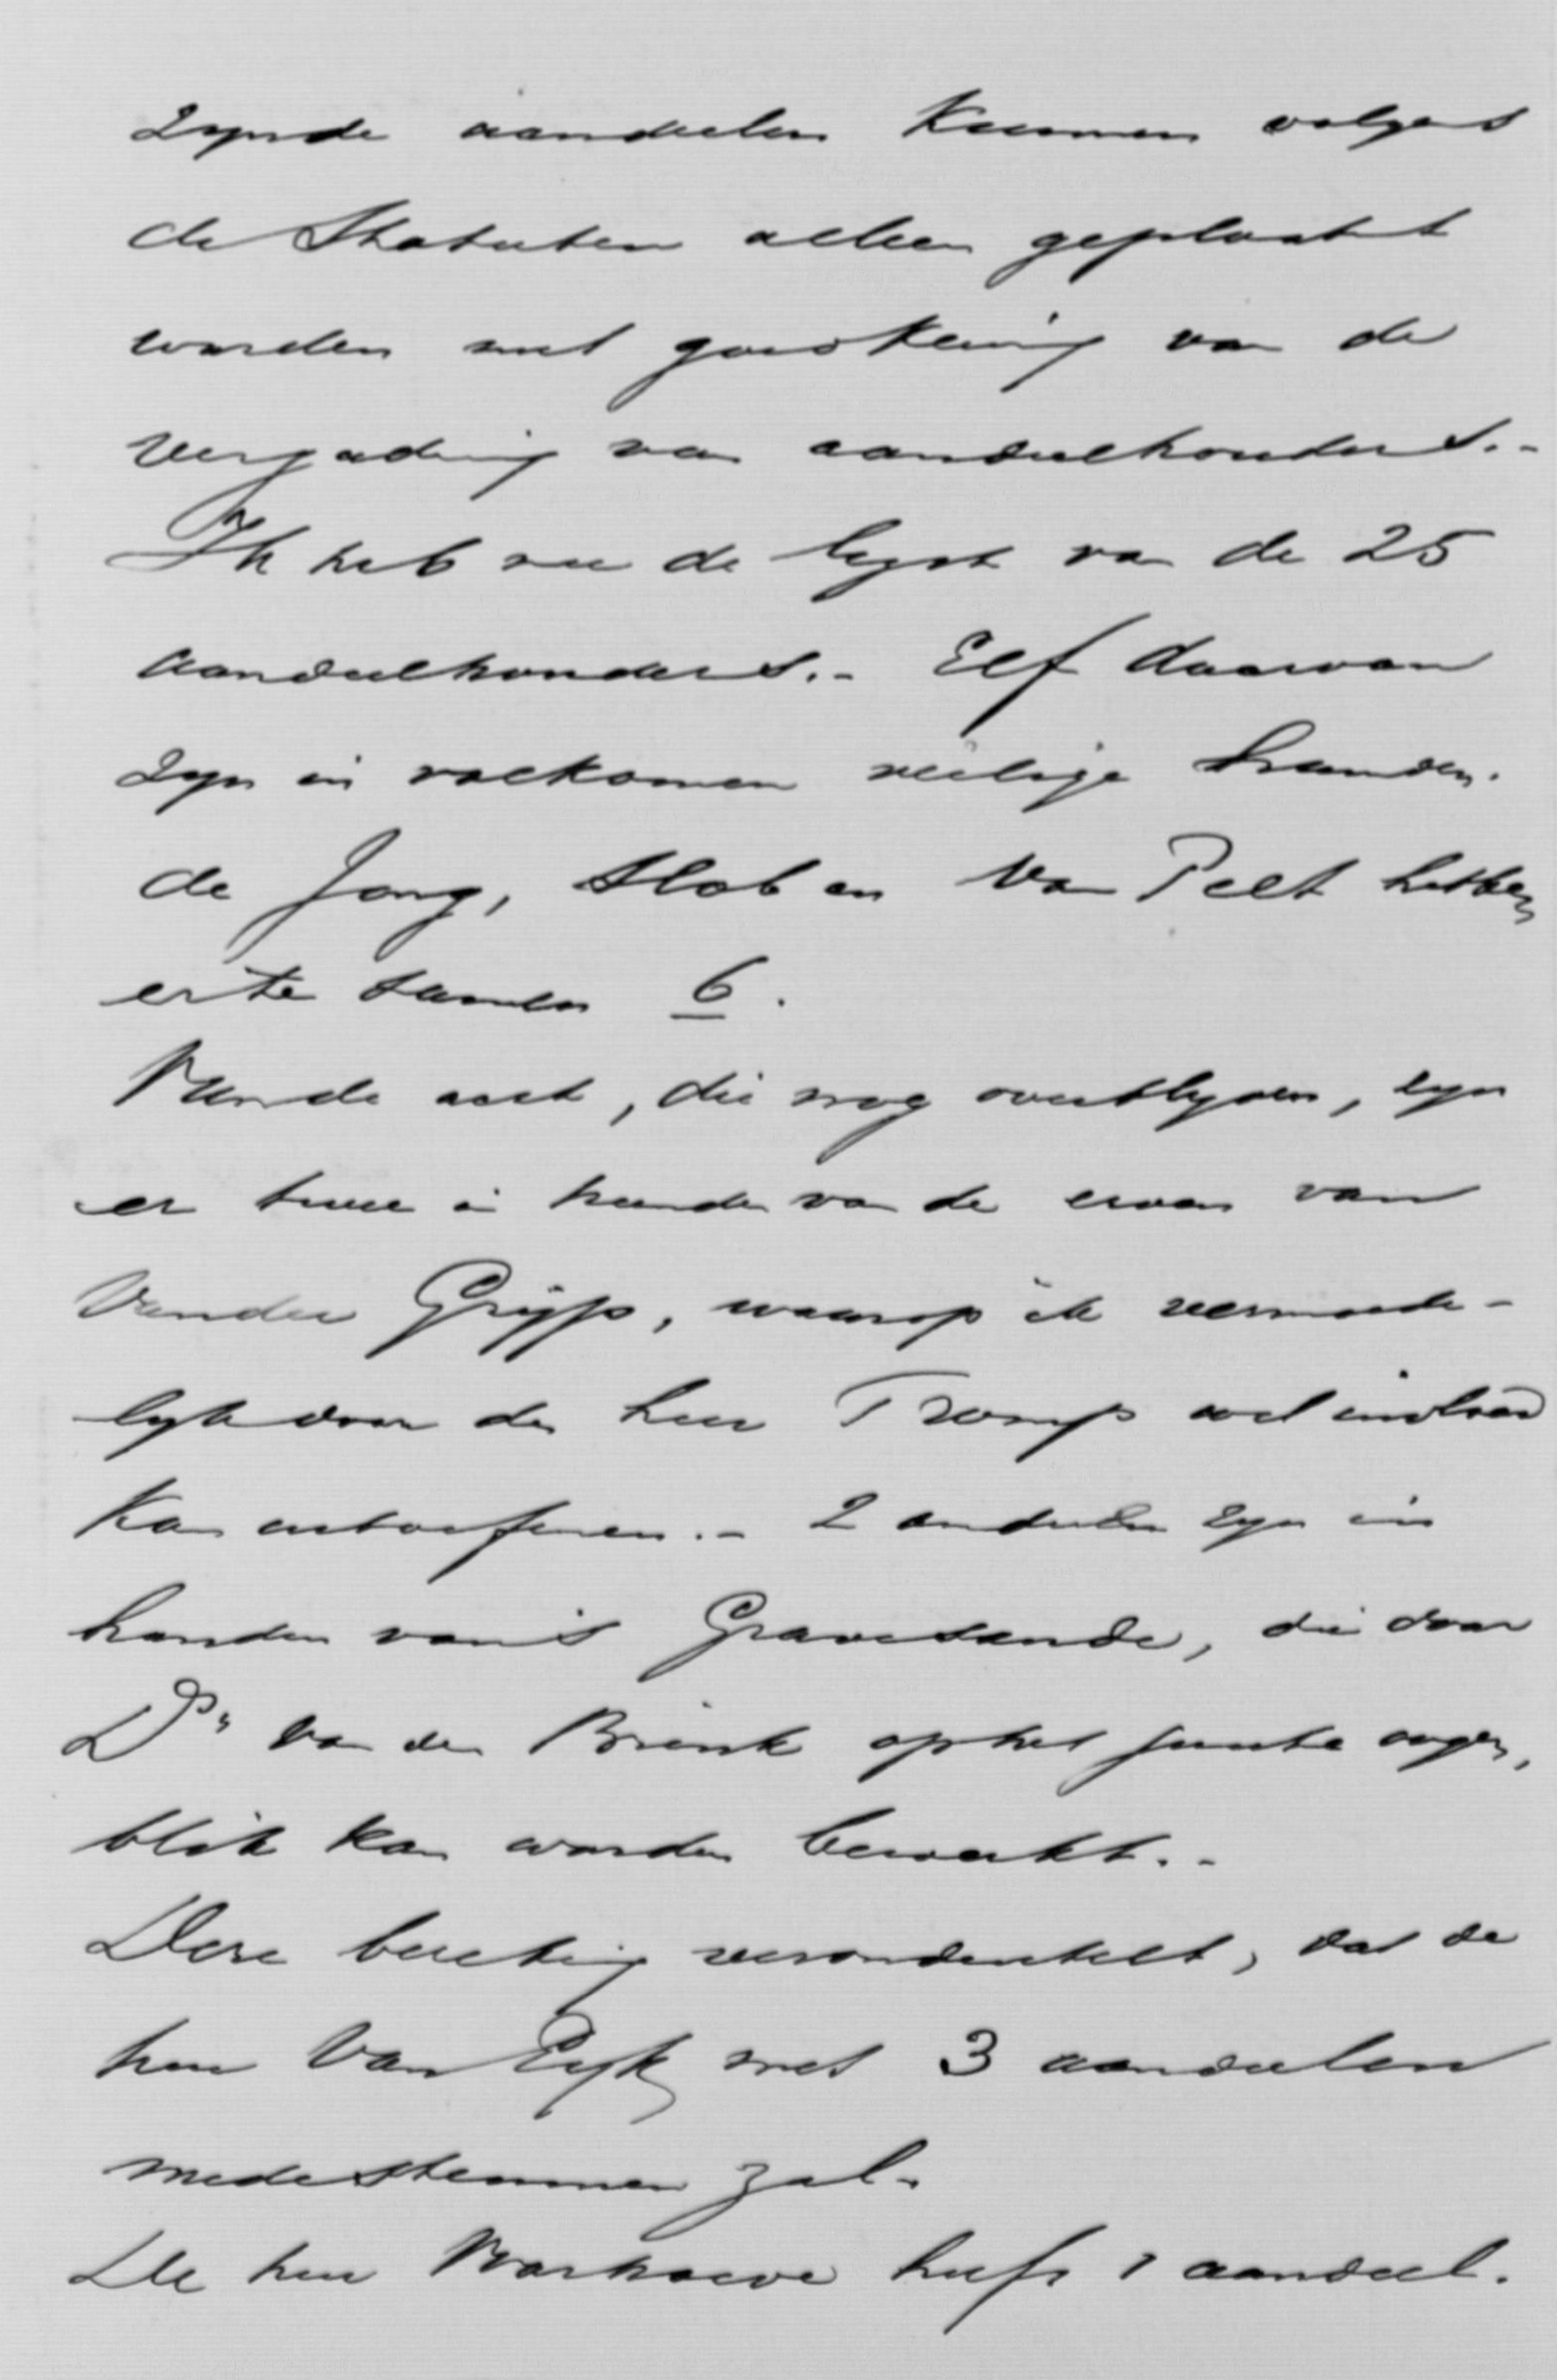 zynde aandeelen kunnen volgens
de Statuten alleen geplaatst
worden met goedkeuring van de
vergadering van aandeelhouders.-
Ik heb nu de lyst van de 25
aandeelhouders.- Elf daarvan
zyn in volkomen veilige handen.
de Jong, Slob en Van Pelt hebben
er te samen 6.
Van de acht, die nog overblyven, zyn
er twee in handen van de erven van
Van der Gryp, waarop ik vermoede-
lyk door den heer Tromp wel invloed
kan uitoefenen.- 2 andeelen zyn in
handen van 's Gravesande, die door
Ds van den Brink op het juiste oogen,
blik kan worden bewerkt.-
Deze berekening veronderstelt, dat de
heer Van Eyk met 3 aandeelen
medestemmen zal.
De heer heeft 1 aandeel.